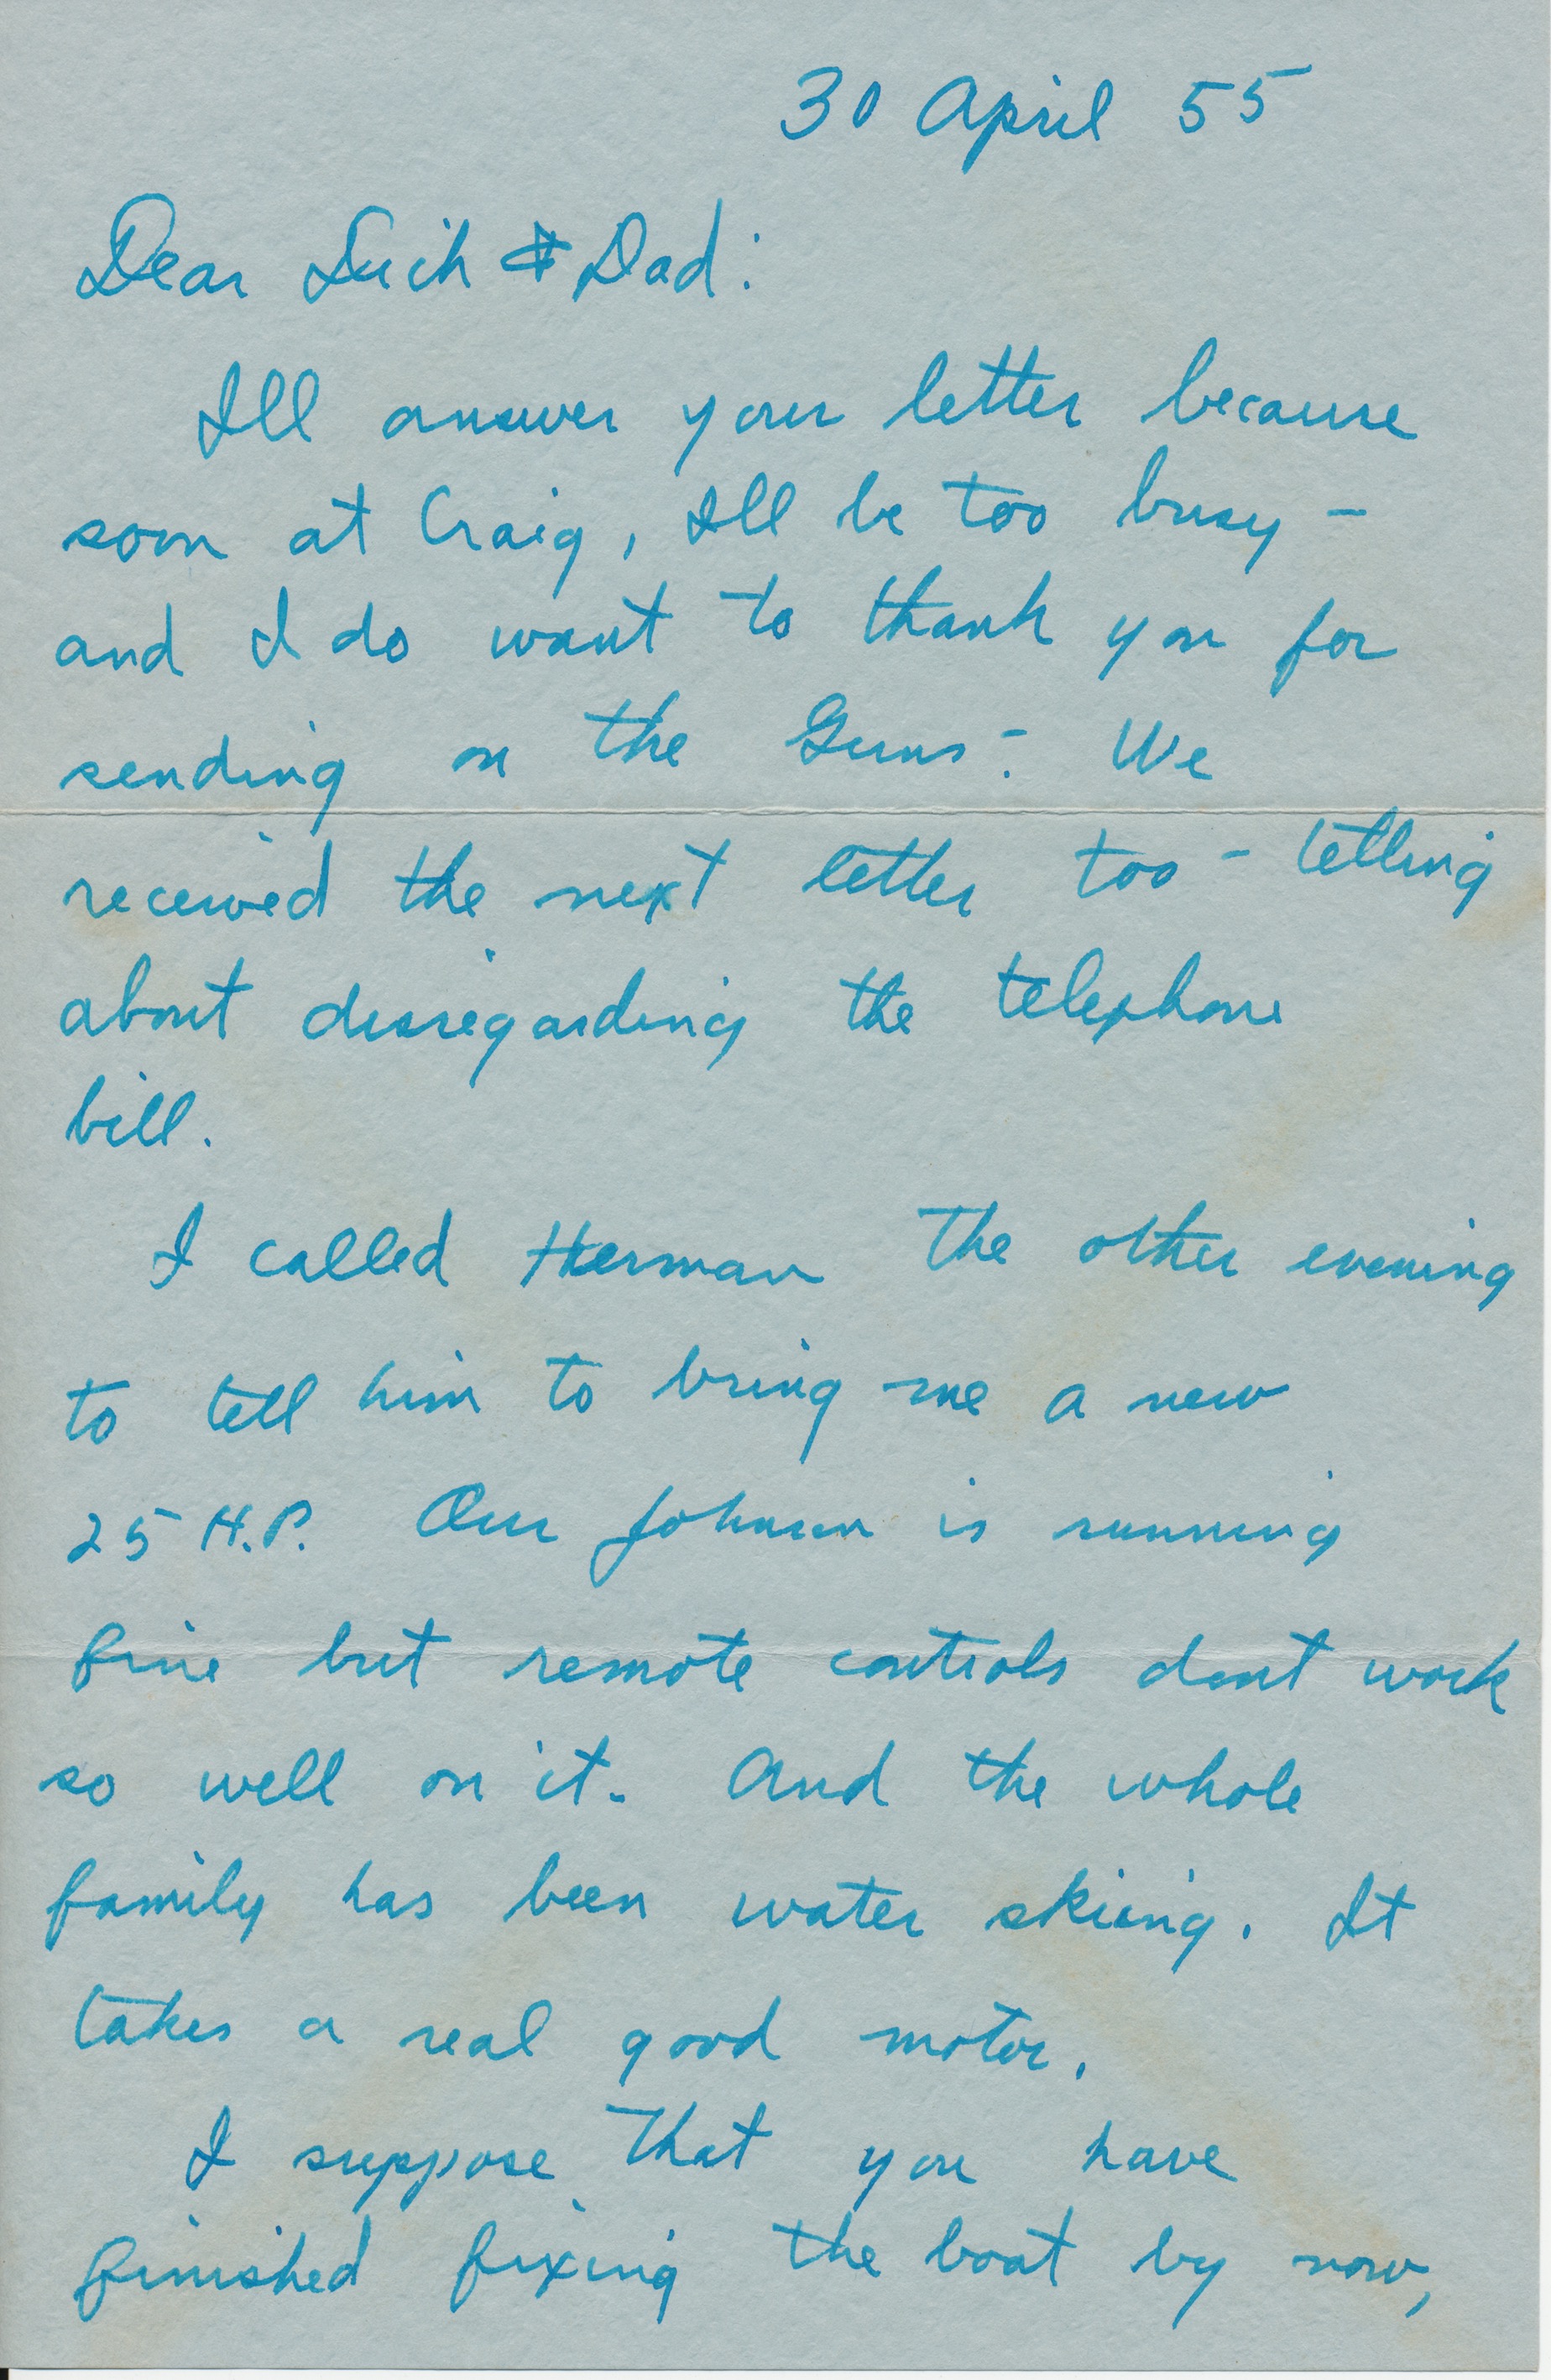 30 April 55
Dear & Dad:
Ill answer your letter because
soon at Craig, Ill be too busy -
and I do want to thank you for
sending on the Guns - We
received the next letter too - telling
about disregarding the telephone
bill.
I called Herman the other evening
to tell him to bring me a new
25 H.P. Our Johnson is running
fine but remote controls dont work
so well on it. And the whole
family has been water skiing. It
takes a real good motor.
I suppose that you have
finished fixing the boat by now,